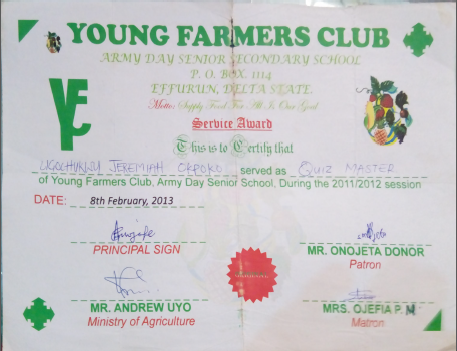 YOUNG FARMERS CLUB
ARMY DAY SENIOR SECONDARY SCHOOL
P. O. BOX. 1114
EFFURUN, DELTA STATE.
Motto: Supply Food For All Is Our Goal
YFC
Service Award
This is to Certify that
UGOCHUKWU JEREMIAH OKPOKO served as QUIZ MASTER
of Young Farmers Club, Army Day Senior School, During the 2011/2012 session
DATE: 8th February, 2013
PRINCIPAL SIGN
MR. ONOJETA DONOR
Patron
MR. ANDREW UYO
Ministry of Agriculture
MRS. OJEFIA P. M
Matron